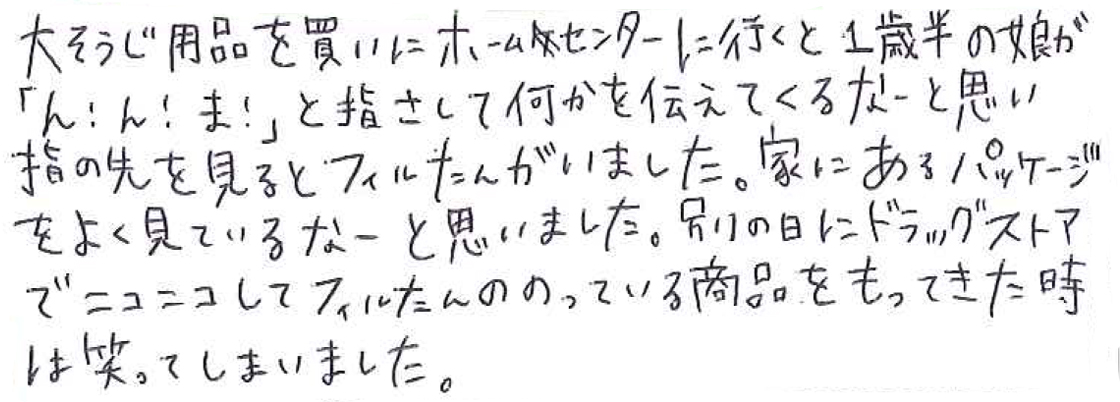 大そうじ用品を買いにホームセンターに行くと1歳半の娘が
「ん！ん！ま！」と指さして何かを伝えてくるなーと思い
指の先を見るとフィルたんがいました。家にあるパッケージ
をよく見ているなーと思いました。別の日にドラッグストア
でニコニコしてフィルたんののっている商品をもってきた時
は笑ってしまいました。